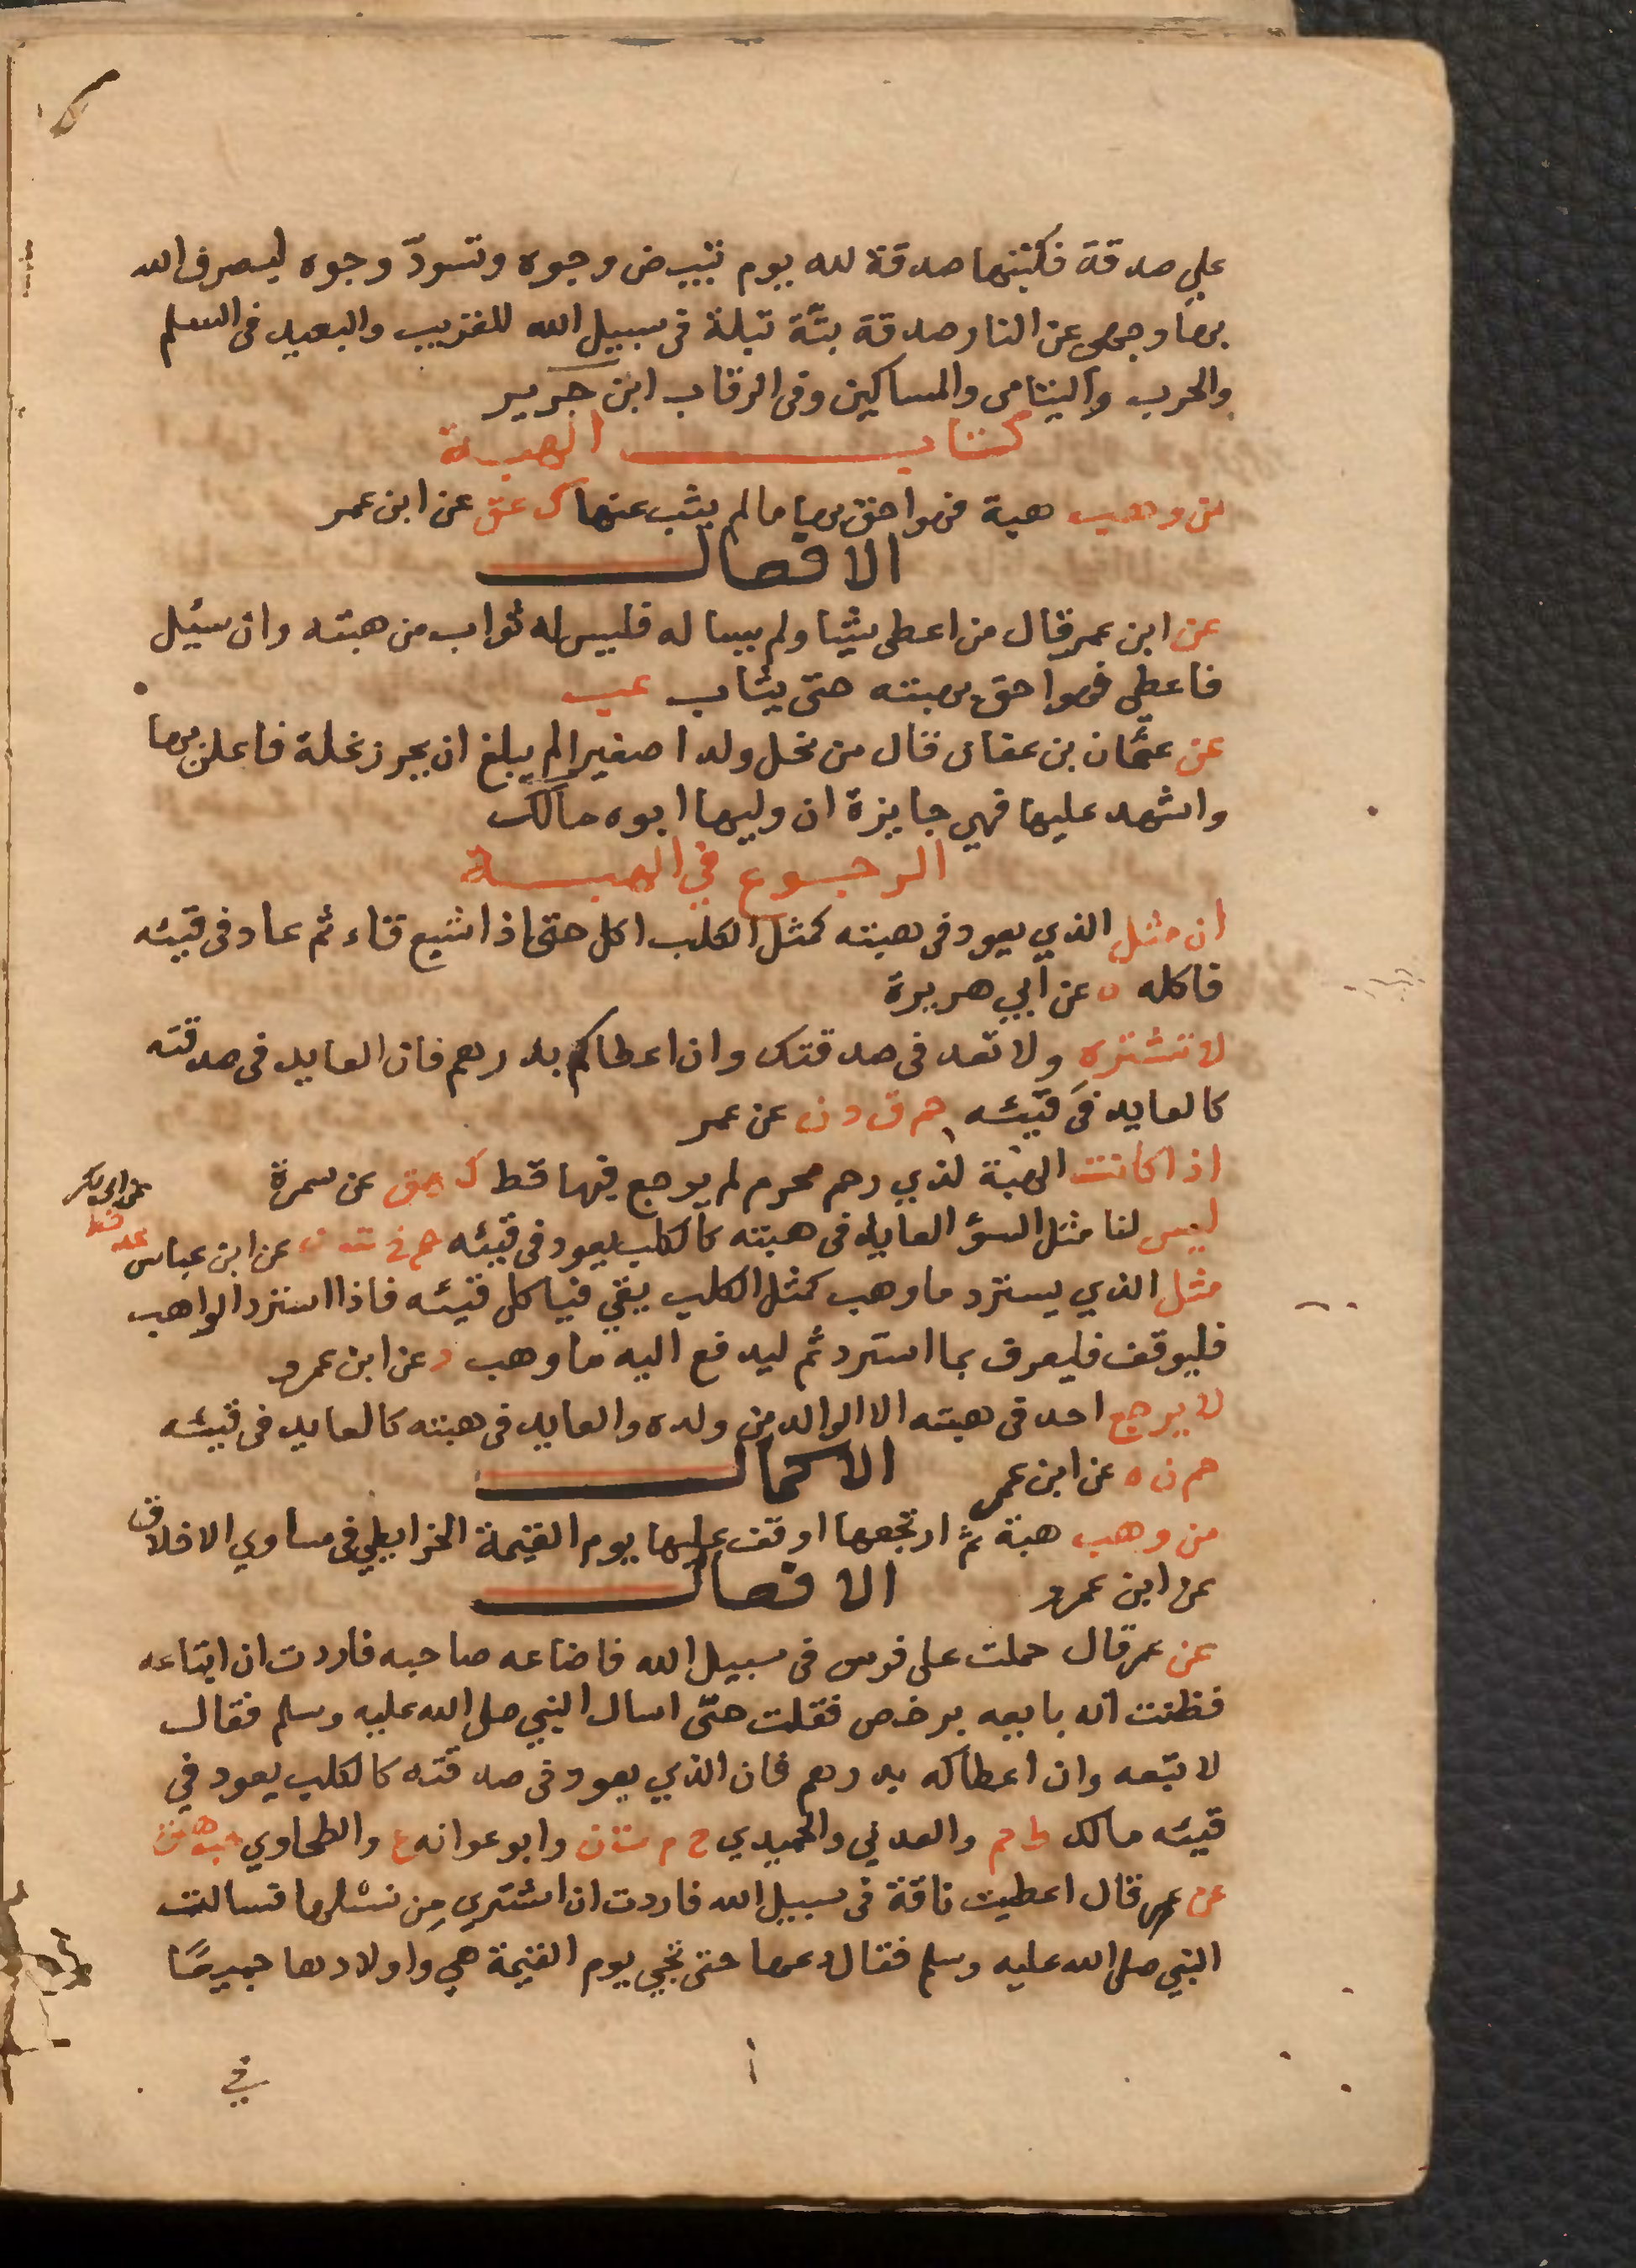 علي صدقة فكتبنها صدقة لله يوم تبيض وجوه وتسودّ وجوه ليصرف الله
بها وجهى عن النار صدقة بتّة تبلة فى سبيل الله للقريب والبعيد فى السلم
والحرب واليتامى والمساكين وفى الرقاب ابن جرير
كتاب الهبة
من وهب هبة فهو احق بها ما لم يثب عنها ك عق عن ابن عمر
الافعال
عن ابن عمر قال من اعطى شيا ولم يسا له فليس له ثواب من هبته وان سيئل
فاعطى فهو احق بهبته حتى يثاب عب
عن عثمان بن عفان قال من نحل ولدا صغيرا لم يبلغ ان يحرز نحلة فاعلن بها
واشهد عليها فهي جايزة ان وليها ابوه مالك
الرجوع في الهبة
ان مثل الذي يعود فى هبته كمثل الكلب اكل حتى اذا شبع قاء ثم عاد فى قيئه
فاكله ه عن أبي هريرة
لا تشتره ولا تعد فى صدقتك وان اعطاكم بدرهم فان العايد فى صدقته
كالعايد في قيئه حم ق د ن عن عمر
اذا كانت الهبة لذي رحم محرم لم يرجع فيها قط ك هق عن سمرة
ليس لنا مثل السؤ العايد فى هبته كالكلب يعود فى قيئه حم خ ت ن عن ابن عباس
عد خط
عن ابى بكر
مثل الذي يسترد ما وهب كمثل الكلب يقي فياكل قيئه فاذا استرد الواهب
فليوقف فليعرف بما استرد ثم ليدفع اليه ما وهب د عن ابن عمرو
لا يرجع احد فى هبته الا الوالد من ولده والعايد فى هبته كالعايد فى قيئه
حم ن ه عن ابن عمر
الاكمال
من وهب هبة ثم ارتجعها اوقف عليها يوم القيمة الخرايطي فى مساوي الاخلاق
عن ابن عمرو
الافعال
عن عمر قال حملت على فرس فى سبيل الله فاضاعه صاحبه فاردت ان ابتاعه
فظننت انه بايعه برخص فقلت حتى اسال النبي صلى الله عليه وسلم فقال
لا تبتعه وان اعطاكه بدرهم فان الذي يعود فى صدقته كالكلب يعود في
قيئه مالك ط حم والعدني والحميدي خ م ت ن وابو عوانه ع والطحاوي حب هق
عن عمر قال اعطيت ناقة فى سبيل الله فاردت ان اشتري من نسلها فسالت
النبي صلى الله عليه وسلم فقال دعها حتى تجي يوم القيمة هي واولادها جميعًا
في